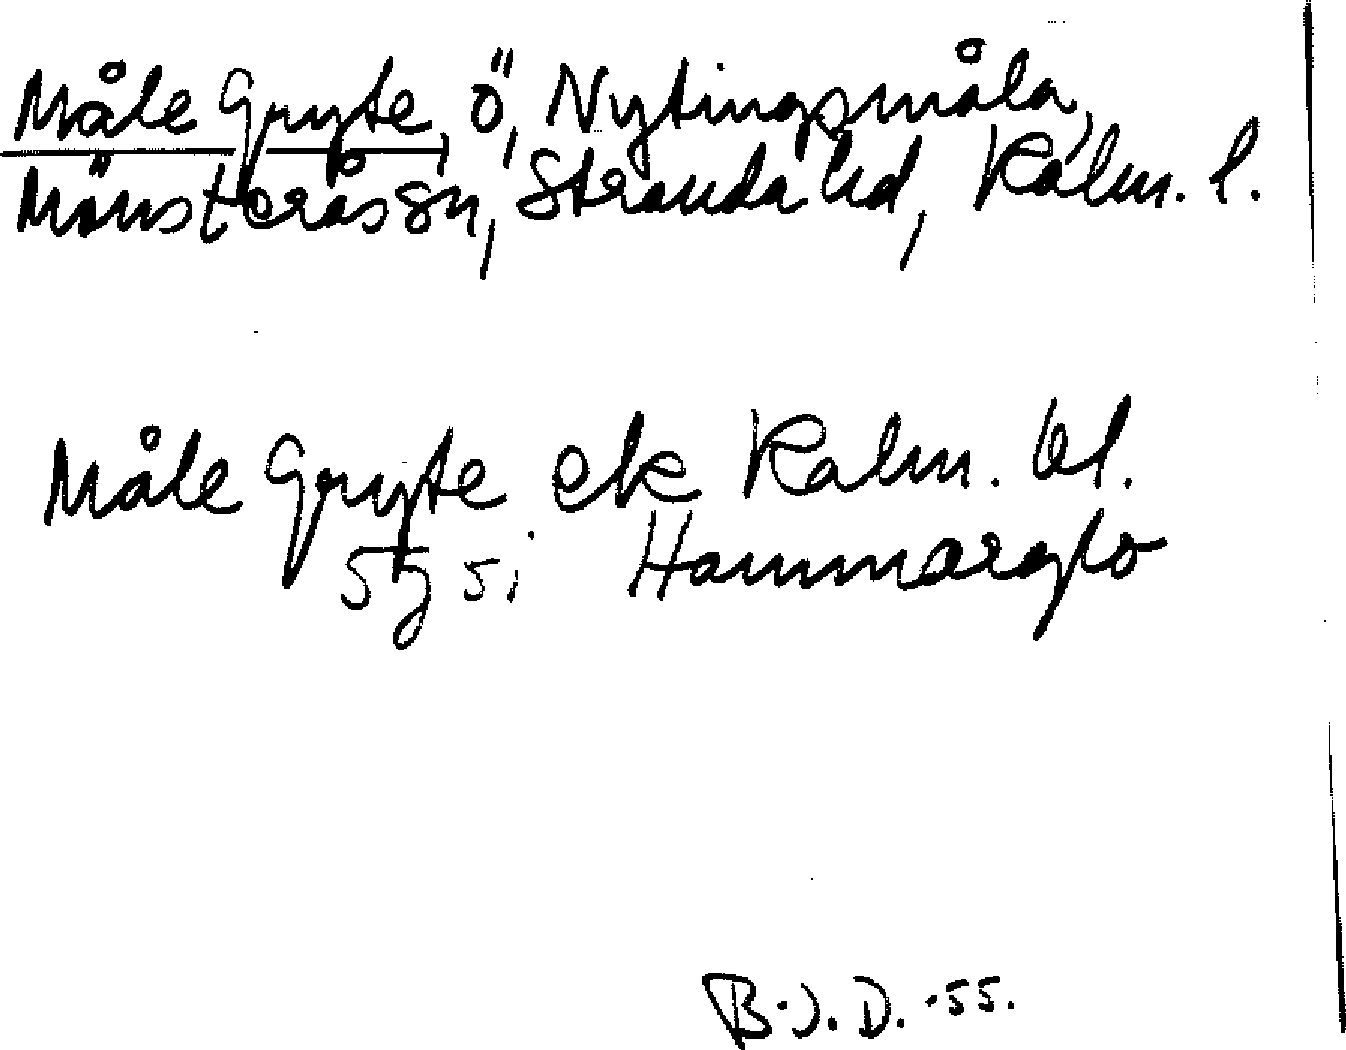 Måle Gryte, ö, Nytingsmåla,
Mönsterås sn, Stranda hd, Kalm. l.
Måle Gryte ek Kalm. bl.
5g 5i Hammarglo
B.J.D. -55.